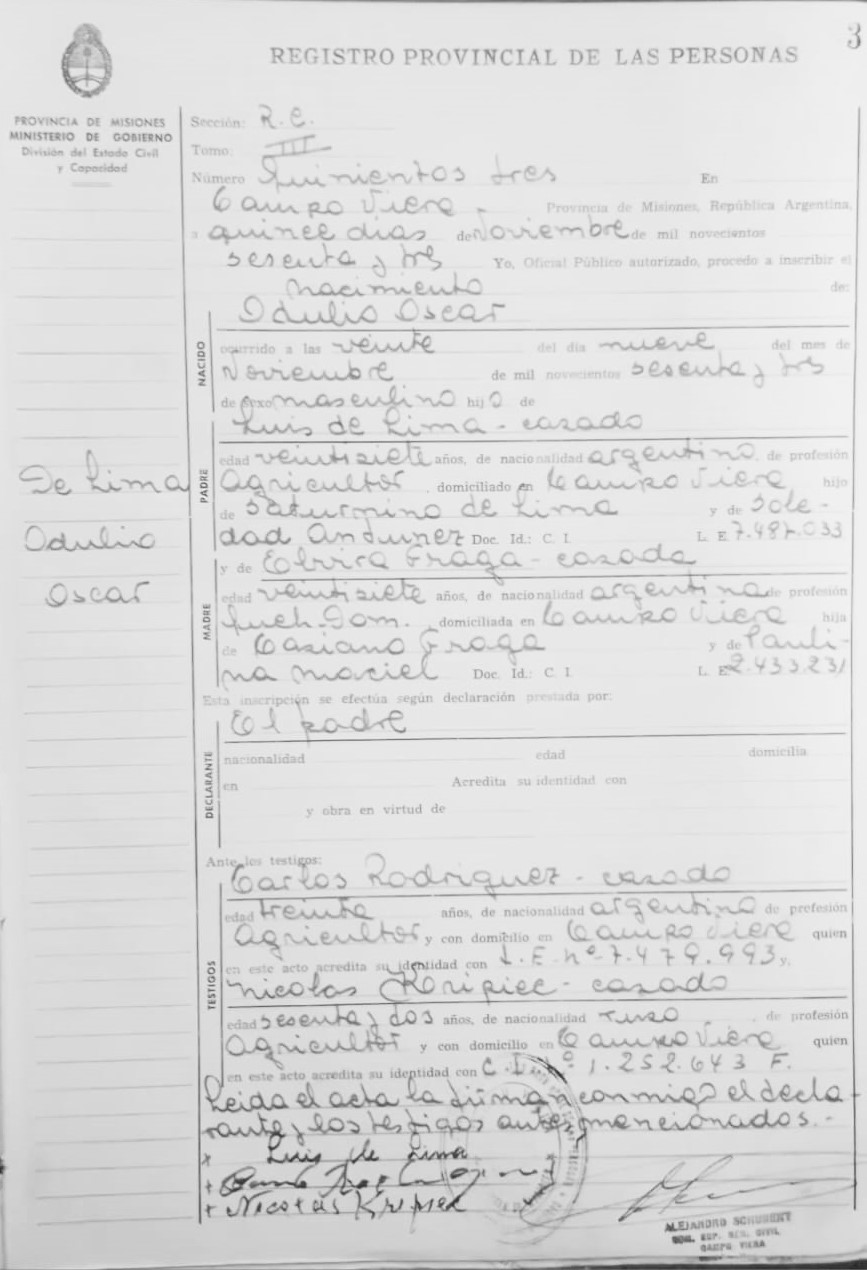 3
REGISTRO PROVINCIAL DE LAS PERSONAS
PROVINCIA DE MISIONES
MINISTERIO DE GOBIERNO
División del Estado Civil
y Capacidad
Sección: R.C.
Tomo: III
Número Quinientos tres En
Campo Viera - Provincia de Misiones, República Argentina,
a quince dias de Noviembre de mil novecientos
sesenta y tres Yo, Oficial Público autorizado, procedo a inscribir el
nacimiento de:
Odulio Oscar
NACIDO
ocurrido a las veinte del día nueve del mes de
Noviembre de mil novecientos sesenta y tres
de sexo masculino hijo de
Luis de Lima - casado
PADRE
edad veintisiete años, de nacionalidad argentino, de profesión
Agricultor, domiciliado en Campo Viera hijo
de Saturnino de Lima y de Sole-
dad Antunez Doc. Id.: C. I. L. E. 7.487.033
De Lima
Odulio
Oscar
y de Elvira Fraga - casada
MADRE
edad veintisiete años, de nacionalidad argentina de profesión
Queh. Dom., domiciliada en Campo Viera hija
de Casiano Fraga y de Pauli-
na Maciel Doc. Id.: C. I. L. E. 2.433.231
Esta inscripción se efectúa según declaración prestada por:
El padre
DECLARANTE
nacionalidad edad domicilia
en Acredita su identidad con
y obra en virtud de
Ante los testigos:
Carlos Rodriguez - casado
TESTIGOS
edad treinta años, de nacionalidad argentino de profesión
Agricultor y con domicilio en Campo Viera quien
en este acto acredita su identidad con L.E. nº 7.479.993 y,
Nicolas Kripiec - casado
edad sesenta y dos años, de nacionalidad ruso, de profesión
Agricultor y con domicilio en Campo Viera quien
en este acto acredita su identidad con C.I. nº 1.252.643 F.
Leida el acta la firman conmigo el decla-
rante y los testigos antes mencionados.-
x Luis de Lima
+
+ Nicolas Kripiec
ALEJANDRO SCHUBERT
CAMPO VIERA